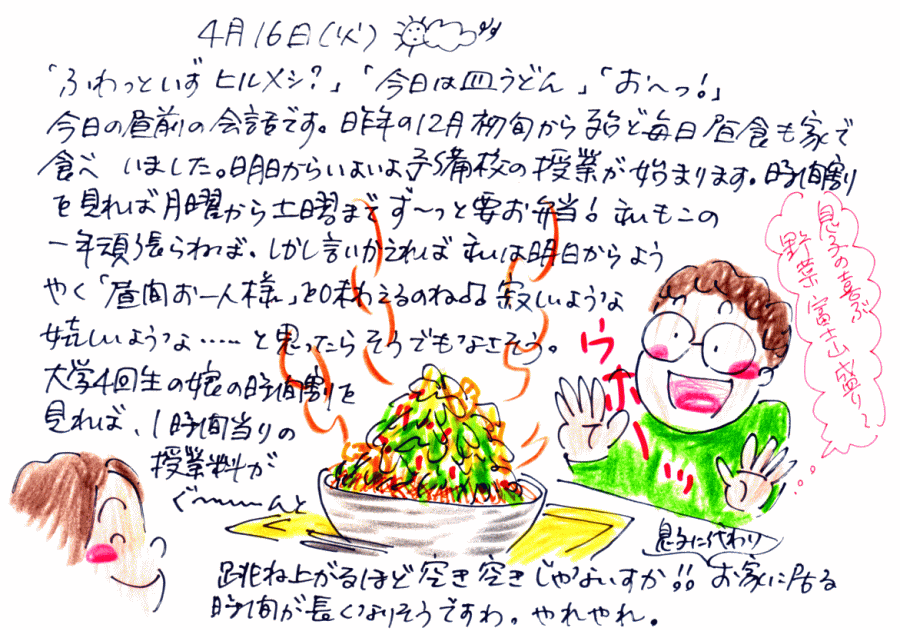 4月16日(火)
「ふわっといず ヒルメシ?」「今日は皿うどん」「お〜っ!」
今日の昼前の会話です。昨年の12月初旬からほど毎日昼食も家で
食べいました。明日からいよいよ予備校の授業が始まります。時間割
を見れば月曜から土曜までず〜っと要お弁当!私もこの
一年頑張らねば。しかし言いかえれば私は明日からよう
やく「昼間お一人様」を味わえるのね♪♪寂しいような
嬉しいような……と思ったらそうでもなさそう。
大学4回生の娘の時間割を
見れば、1時間当りの
授業料が
ぐ〜〜〜んと
跳ね上がるほど空き空きじゃないすか!!お家に居る
時間が長くなりそうですわ。やれやれ。
息子に代わり
ウホーッッ
息子の喜ぶ
野菜富士山盛り